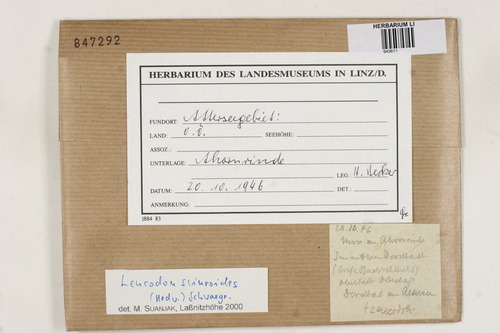 847292
HERBARIUM LI
943611
HERBARIUM DES LANDESMUSEUMS IN LINZ/D.
FUNDORT: Atterseegebiet:
LAND: O.Ö. SEEHÖHE:
ASSOZ.:
UNTERLAGE: Ahornrinde
LEG.: H.
DATUM: 20. 10. 1946 DET.:
ANMERKUNG:
1884 83
Leucodon sciuroides
(Hedw.) Schwaegr.
det. M. SUANJAK, Laßnitzhöhe 2000
20.10.46
Moos an Ahornrinde